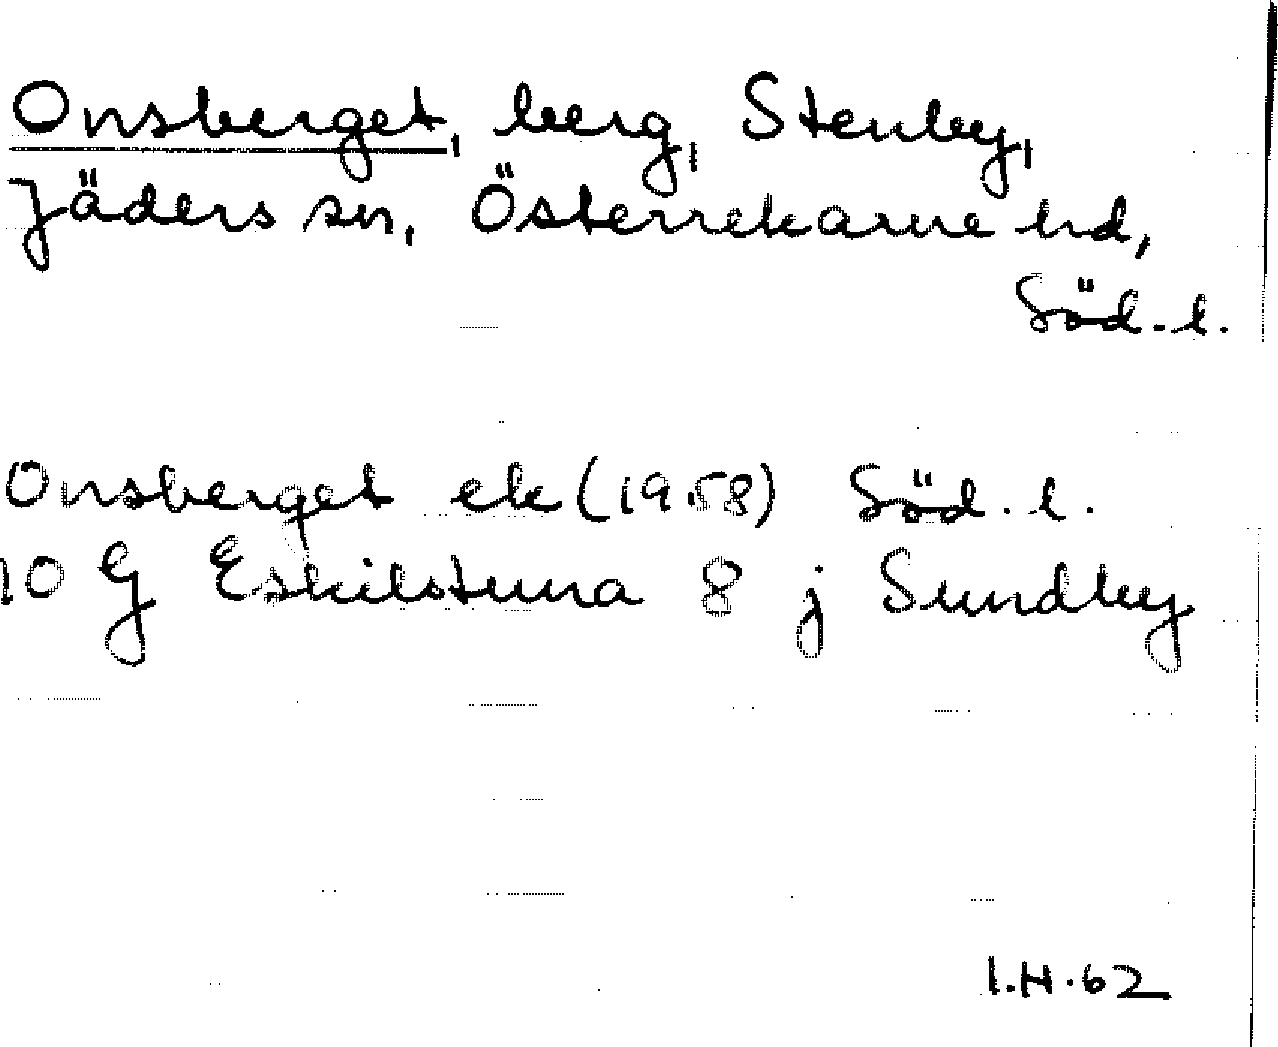 Onsberget, berg, Stenby,
Jäders sn, Österrekarne hd,
Söd. l.
Onsberget ek (1958) Söd. l.
10 G Eskilstuna 8 j Sundby
I.H. 62